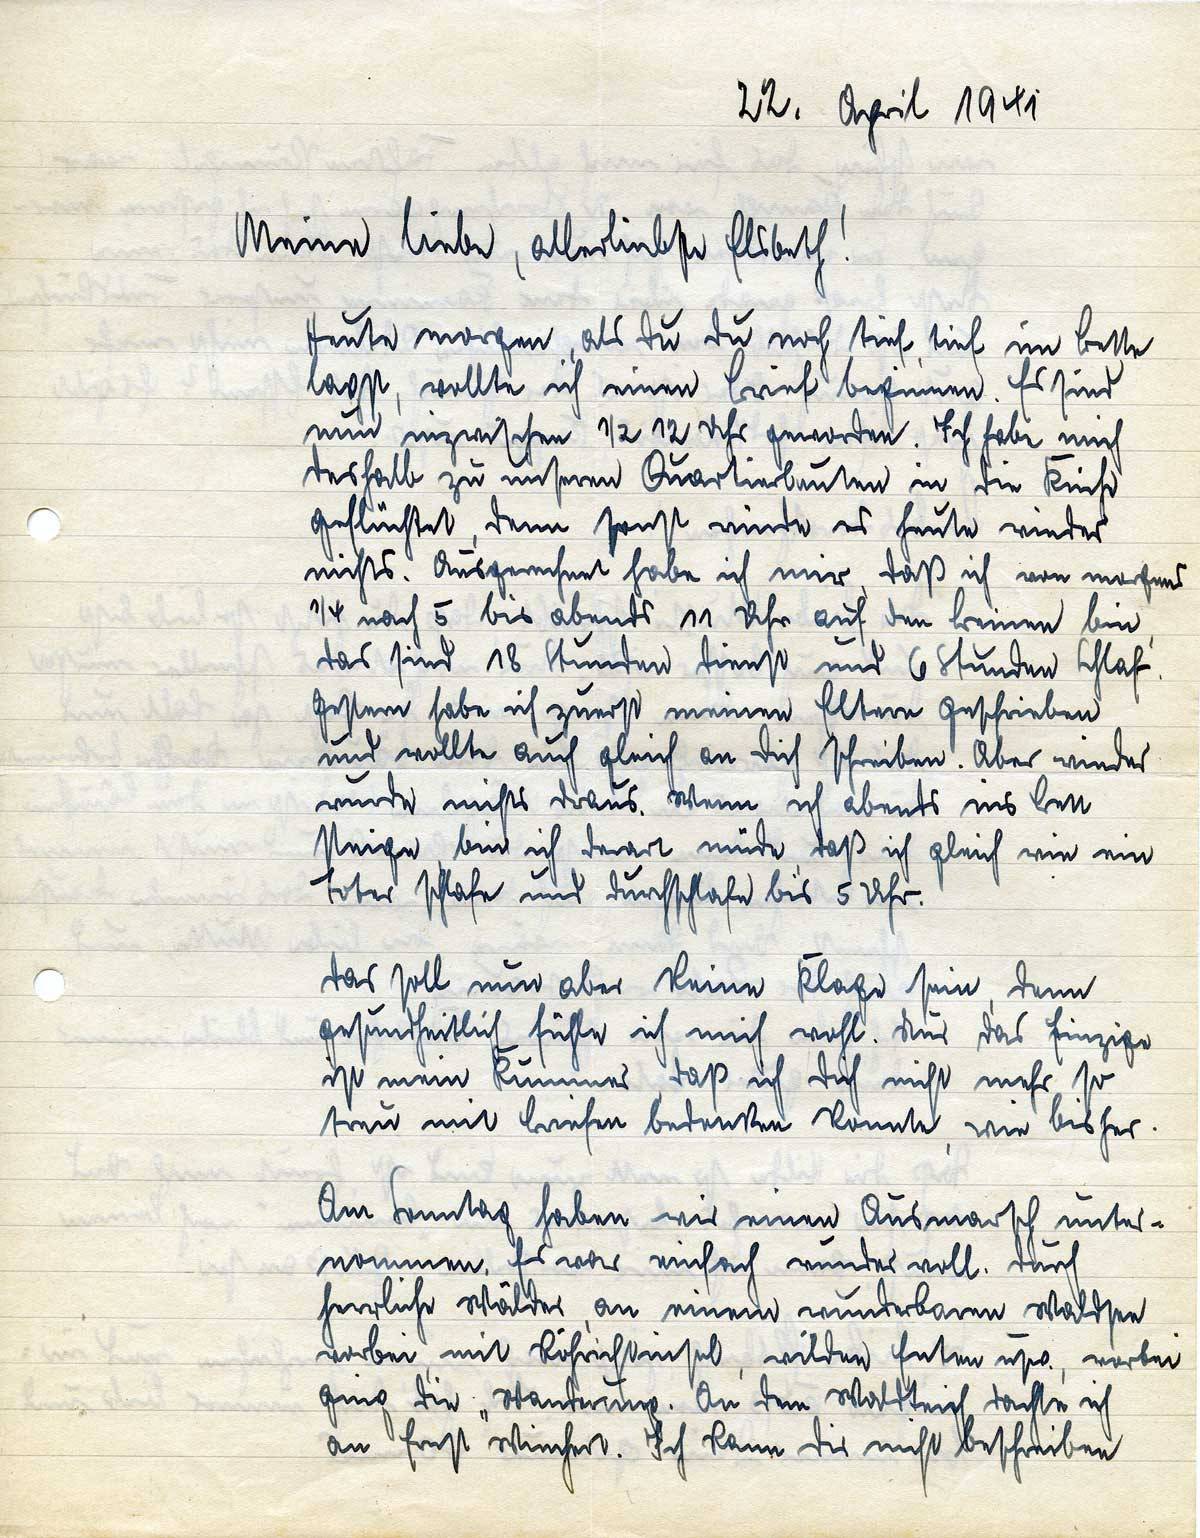 22. April 1941
Meine liebe, allerliebste Elsbeth!
Heute morgen, als Du Du noch tief, tief im Bette
lagst, wollte ich einen Brief beginnen. Es sind
nun inzwischen 1/2 12 Uhr geworden. Ich habe mich
deshalb zu unseren Quartierleuten in die Küche
geflüchtet, denn sonst würde es heute wieder
nichts. Ausgerechnet habe ich mir, daß ich von morgens
1/4 nach 5 bis abends 11 Uhr auf den Beinen bin,
das sind 18 Stunden Dienst und 6 Stunden Schlaf.
Gestern habe ich zuerst meinen Eltern geschrieben
und wollte auch gleich an Dich schreiben. Aber wieder
wurde nichts draus. Wenn ich abends ins Bett
steige, bin ich derart müde, daß ich gleich wie ein
Toter schlafe und durchschlafe bis 5 Uhr.
Das soll nun aber keine Klage sein, denn
gesundheitlich fühle ich mich wohl. Nur das Einzige
ist mein Kummer, daß ich Dich nicht mehr so
treu mit Briefen bedenken konnte, wie bisher.
Am Sonntag haben wir einen Ausmarsch unter-
nommen. Es war einfach wundervoll. Durch
herrliche Wälder, an einem wunderbaren Waldsee
vorbei, mit Röhrichtinsel, wilden Enten usw., vorbei
ging die „Wanderung. An dem Waldteich dachte ich
an Ernst Wiechert. Ich kann Dir nicht beschreiben